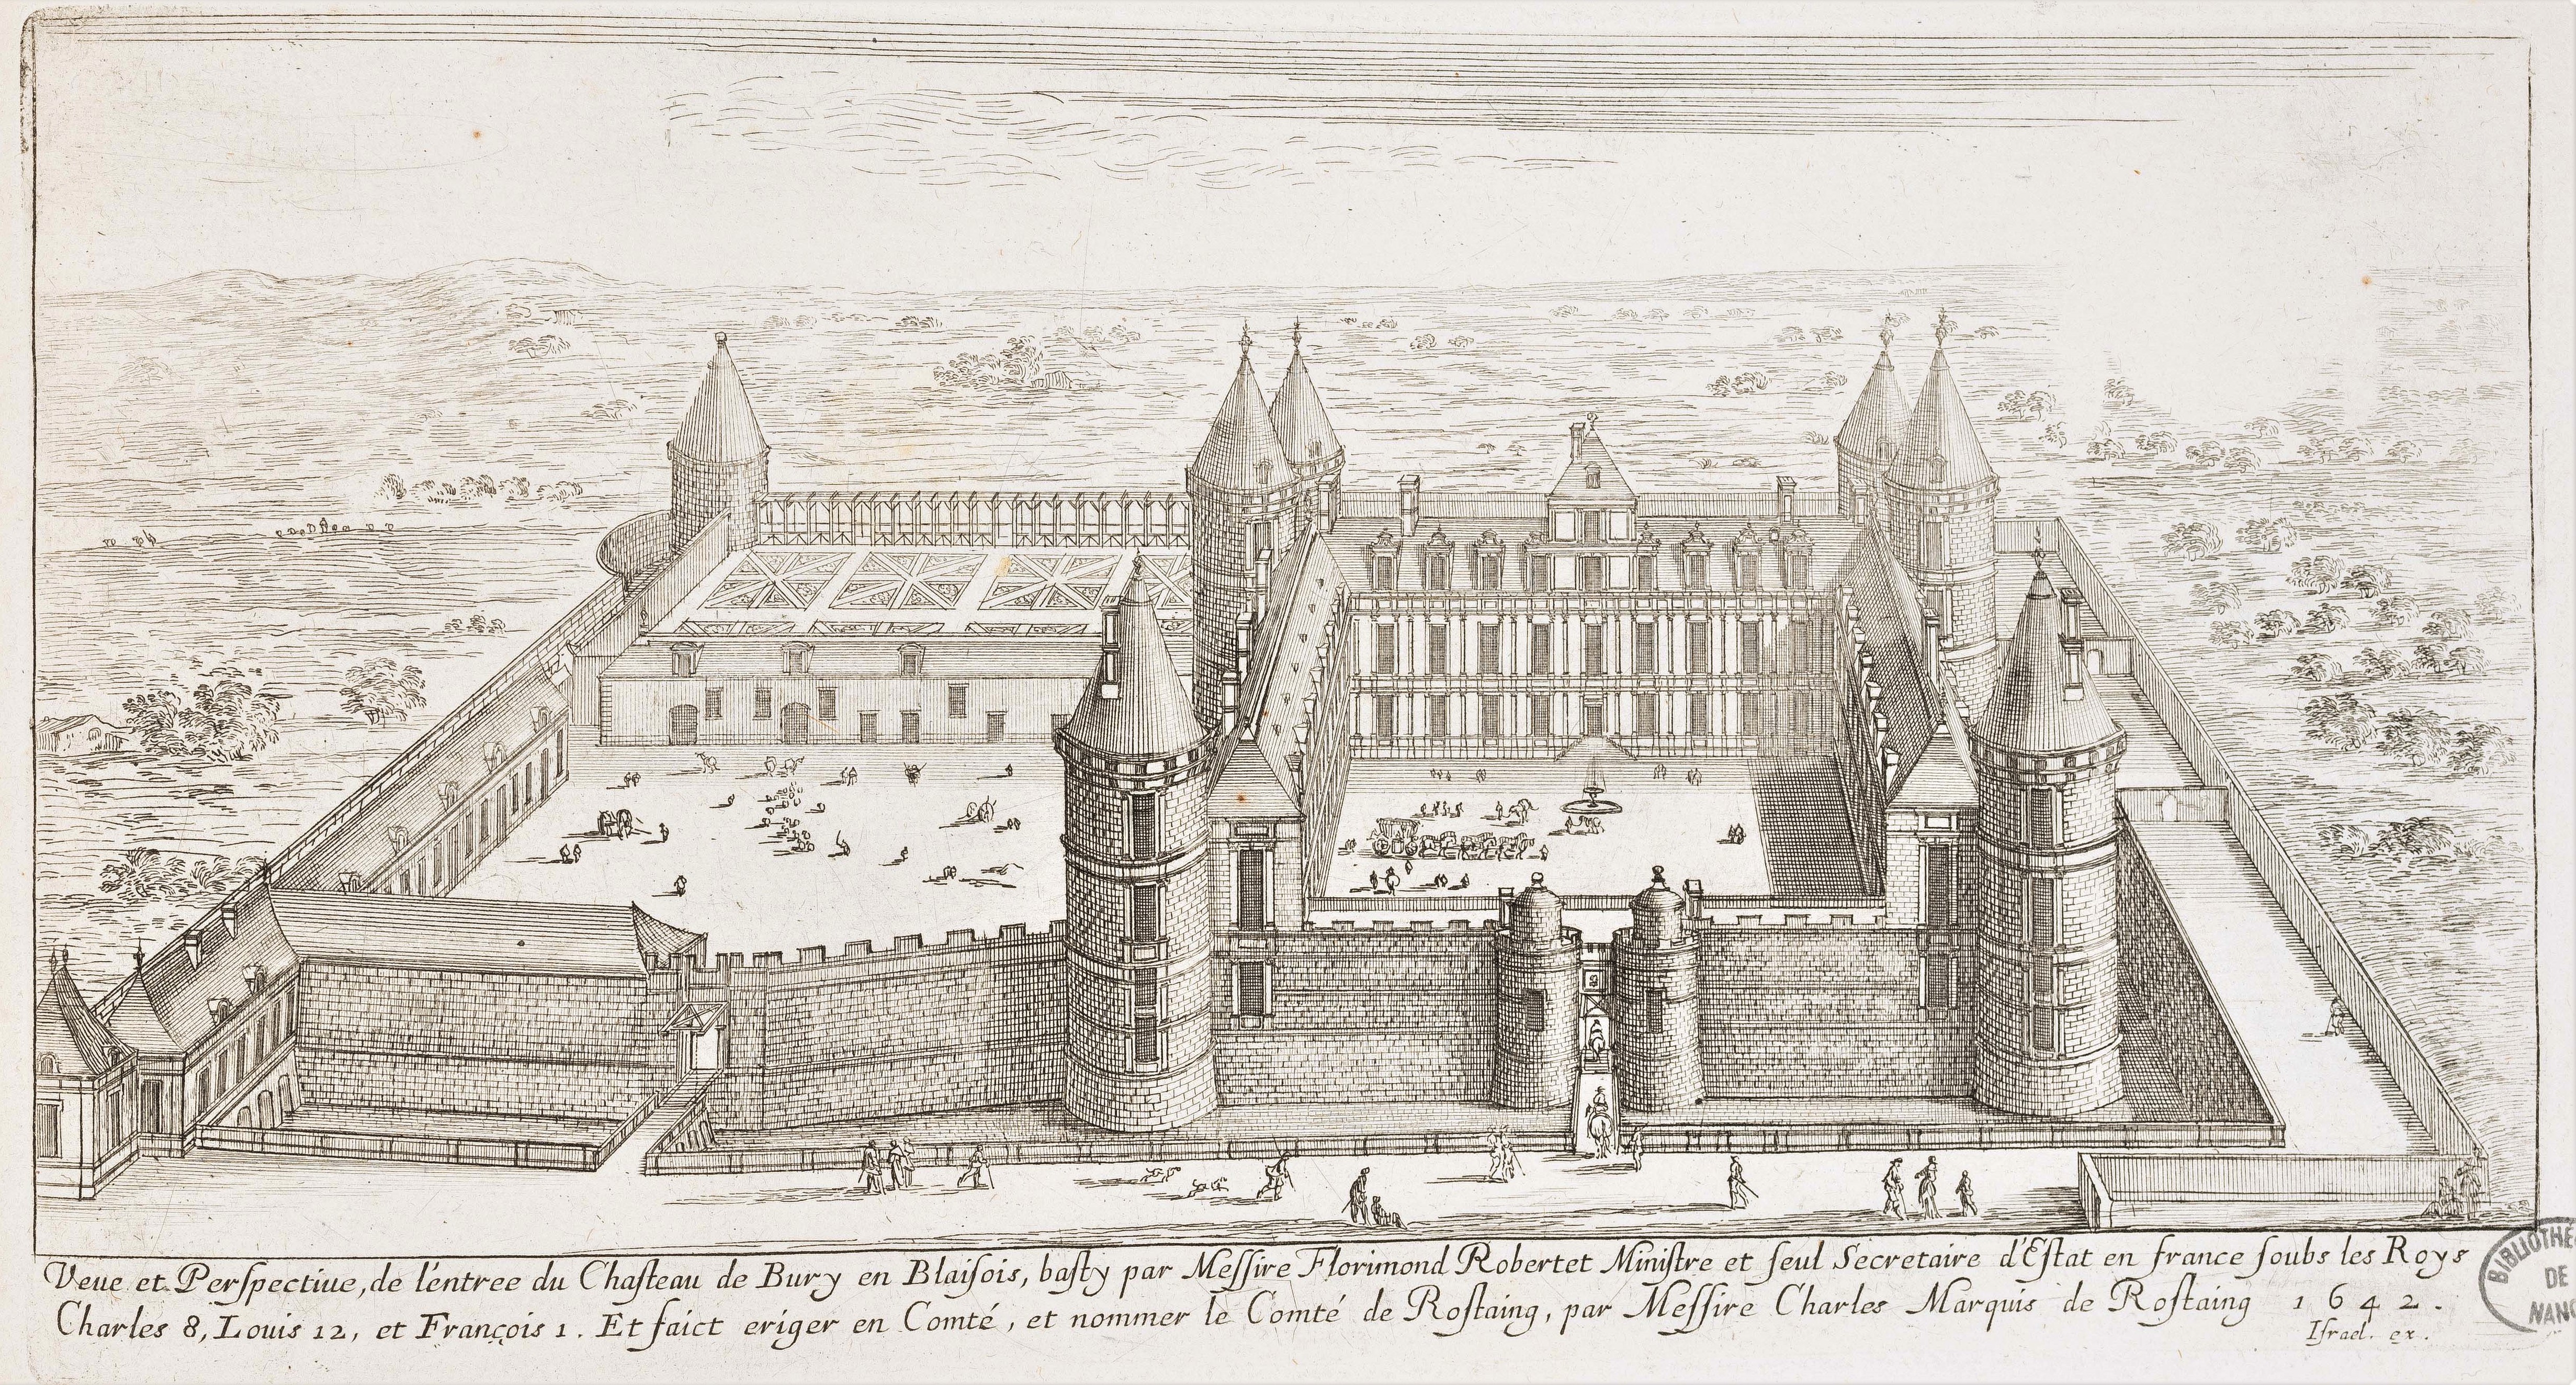 Veue et Perſpectiue, de l'entree du Chaſteau de Bury en Blaiſois, baſty par Meſſire Florimond Robertet Miniſtre et ſeul Secretaire d'Eſtat en france ſoubs les Roys
Charles 8, Louis 12, et François 1. Et faict eriger en Comté, et nommer le Comté de Roſtaing, par Meſſire Charles Marquis de Roſtaing 1642.
Iſrael. ex.
BIBLIOTHÈ
DE
NANC